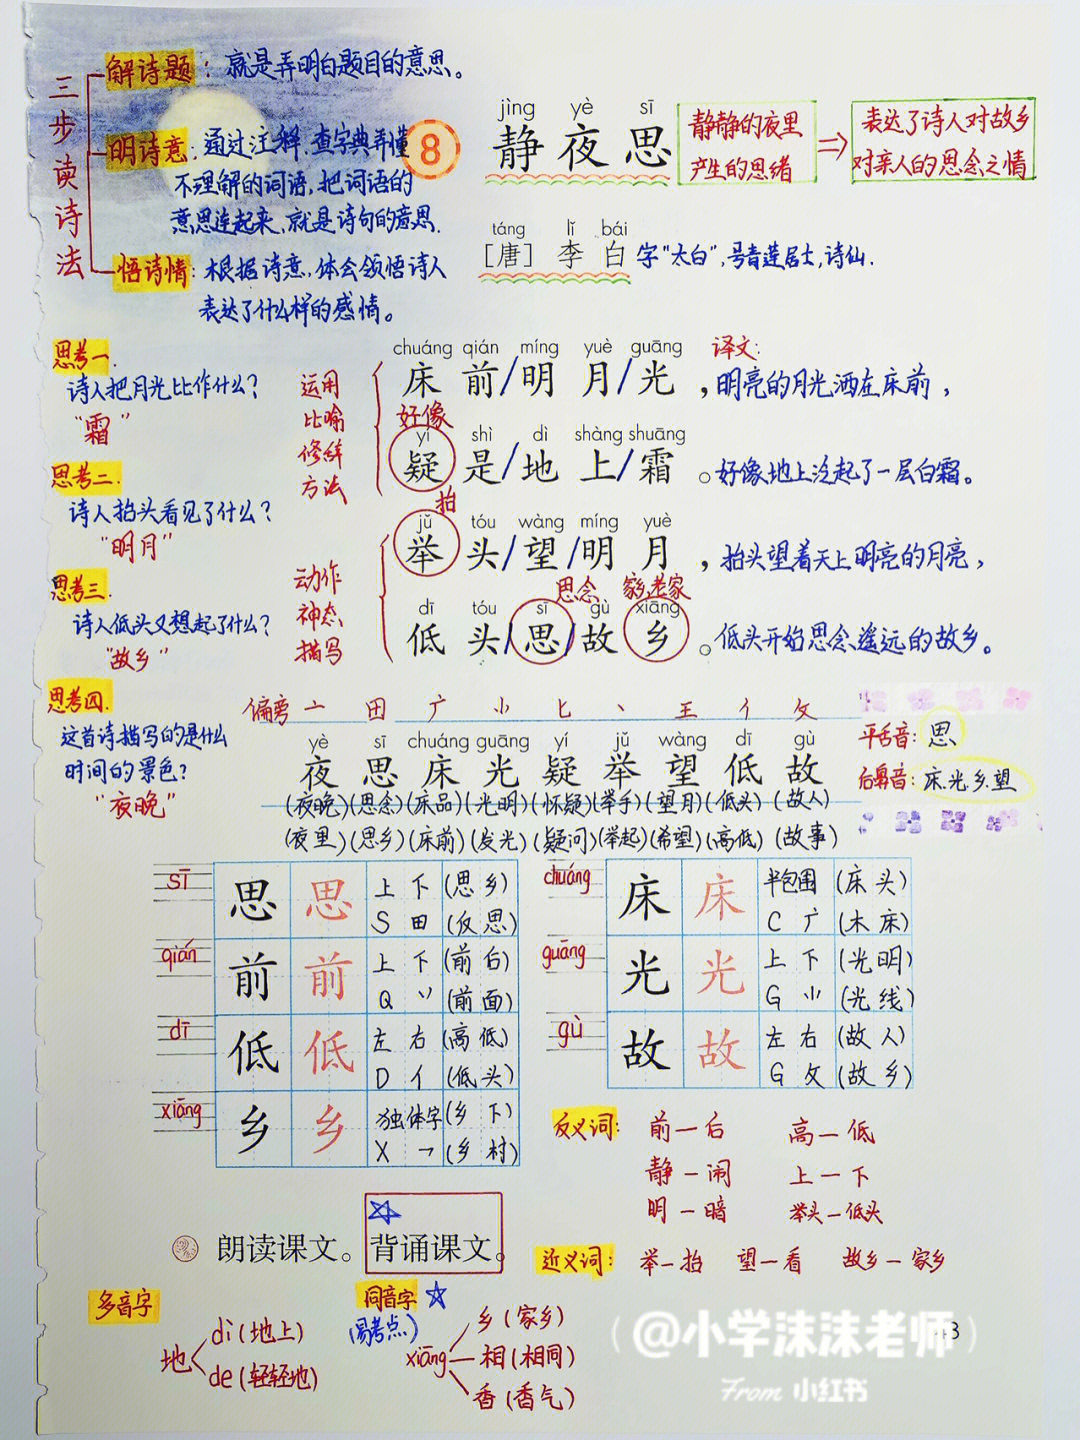 三步读诗法
解诗题：就是弄明白题目的意思。
明诗意：通过注释,查字典弄懂
不理解的词语,把词语的
意思连起来,就是诗句的意思.
悟诗情：根据诗意,体会领悟诗人
表达了什么样的感情。
8
jìng yè sī
静夜思
静静的夜里
产生的思绪
⇒
表达了诗人对故乡
对亲人的思念之情
táng lǐ bái
[唐] 李白 字"太白",号青莲居士,诗仙.
思考一.
诗人把月光比作什么?
"霜"
思考二.
诗人抬头看见了什么?
"明月"
思考三.
诗人低头又想起了什么?
"故乡"
思考四.
这首诗描写的是什么
时间的景色?
"夜晚"
运用
比喻
修辞
方法
动作
神态
描写
chuáng qián míng yuè guāng
床前/明月/光，
译文:
明亮的月光洒在床前，
好像
yí shì dì shàng shuāng
疑是/地上/霜。好像地上泛起了一层白霜。
抬
jǔ tóu wàng míng yuè
举头/望/明月，抬头望着天上明亮的月亮，
思念 家乡,老家
dī tóu sī gù xiāng
低头/思/故乡。低头开始思念遥远的故乡。
偏旁 亠 田 广 ⺌ 匕 丶 王 亻 攵
yè sī chuáng guāng yí jǔ wàng dī gù
夜 思 床 光 疑 举 望 低 故
(夜晚)(思念)(床品)(光明)(怀疑)(举手)(望月)(低头)(故人)
(夜里)(思乡)(床前)(发光)(疑问)(举起)(希望)(高低)(故事)
平舌音: 思
后鼻音: 床.光.乡.望
sī 思 思 上下 (思乡)
S 田 (反思)
qián 前 前 上下 (前后)
Q 丷 (前面)
dī 低 低 左右 (高低)
D 亻 (低头)
xiāng 乡 乡 独体字 (乡下)
X 乛 (乡村)
chuáng 床 床 半包围 (床头)
C 广 (木床)
guāng 光 光 上下 (光明)
G ⺌ (光线)
gù 故 故 左右 (故人)
G 攵 (故乡)
反义词: 前—后 高—低
静—闹 上—下
明—暗 举头—低头
朗读课文。背诵课文。
近义词: 举—抬 望—看 故乡—家乡
多音字
地 dì(地上)
de(轻轻地)
同音字
(易考点)
xiāng 乡(家乡)
相(相同)
香(香气)
@小学沫沫老师
From 小红书